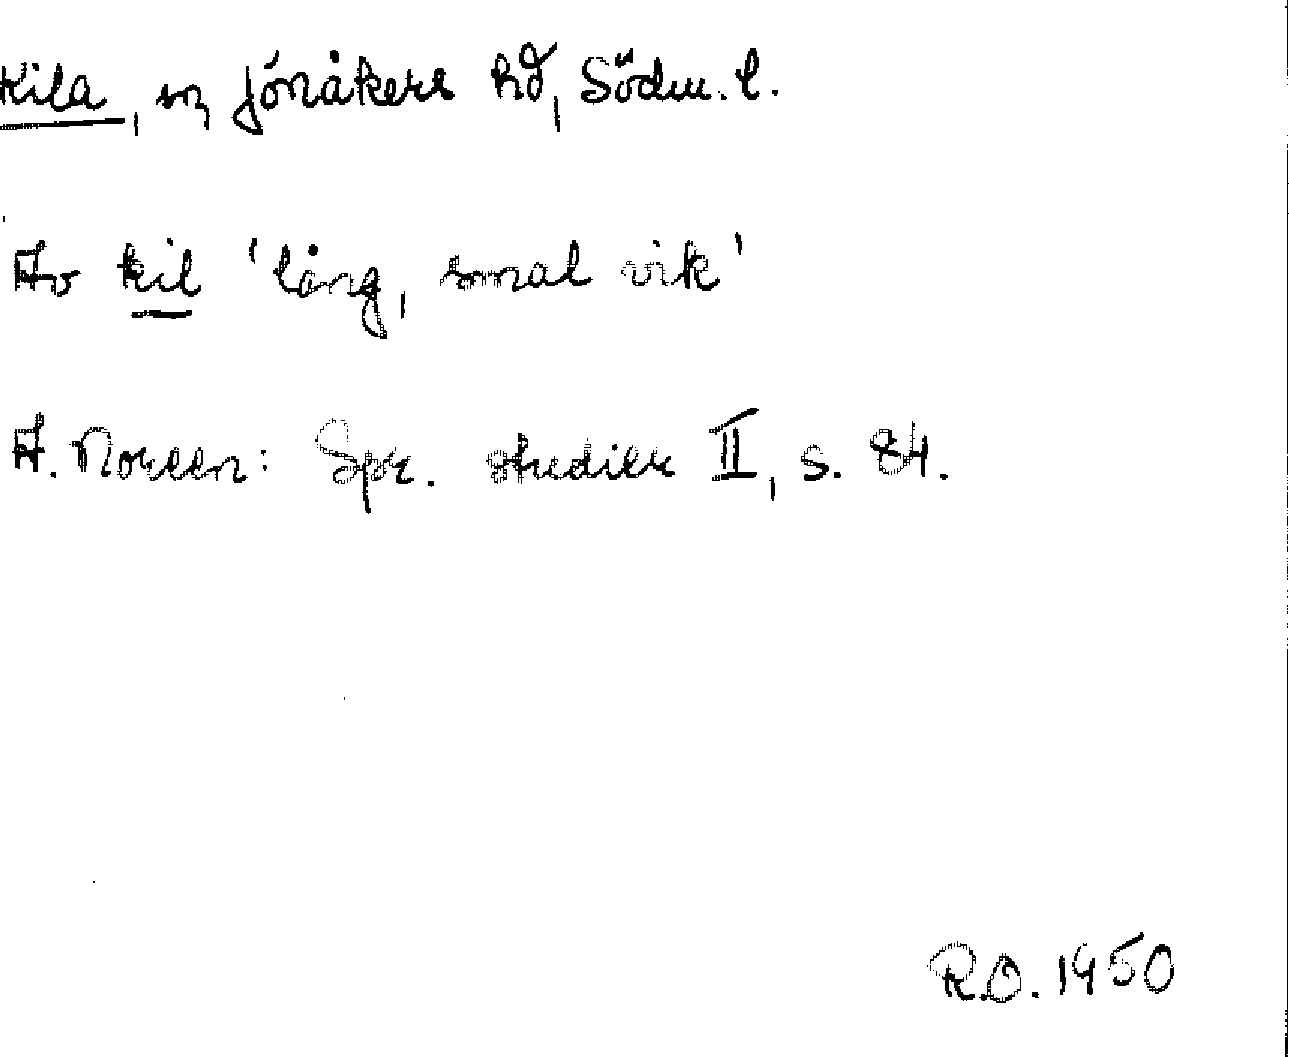 Kila, sn Jönåkers hd, Södm. l.
Av kil 'lång, smal vik'
A. Noreen: Spr. studier II, s. 84.
R.O. 1950